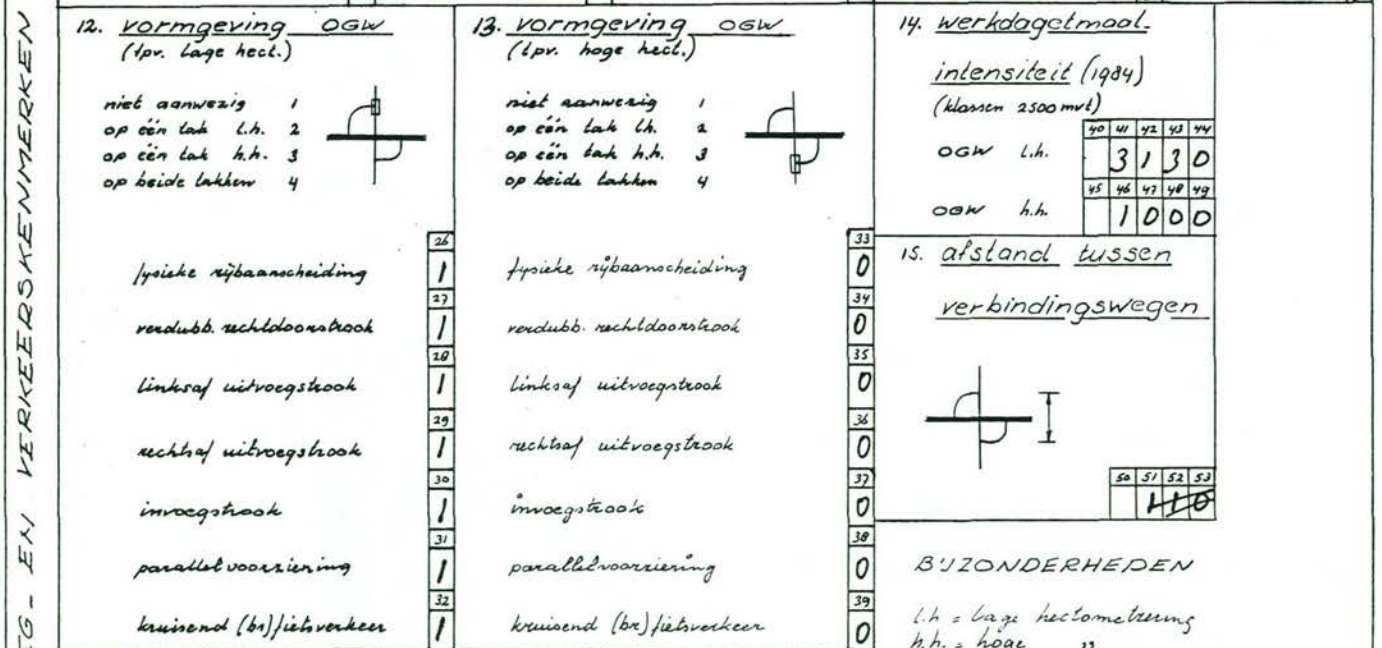 EG- EN VERKEERSKENMERKEN
12. vormgeving OGW
(tpv. lage hect.)
niet aanwezig 1
op één tak l.h. 2
op één tak h.h. 3
op beide takken 4
26
fysieke rijbaanscheiding 1
27
verdubb. rechtdoorstrook 1
28
linksaf uitvoegstrook 1
29
rechtsaf uitvoegstrook 1
30
invoegstrook 1
31
parallelvoorziening 1
32
kruisend (br) fietsverkeer 1
13. vormgeving OGW
(tpv. hoge hect.)
niet aanwezig 1
op één tak lh. 2
op één tak h.h. 3
op beide takken 4
33
fysieke rijbaanscheiding 0
34
verdubb. rechtdoorstrook 0
35
linksaf uitvoegstrook 0
36
rechtsaf uitvoegstrook 0
37
invoegstrook 0
38
parallelvoorziening 0
39
kruisend (br) fietsverkeer 0
14. werkdagetmaal.
intensiteit (1984)
(klassen 2500 mvt)
40 41 42 43 44
OGW l.h. 3 1 3 0
45 46 47 48 49
OGW h.h. 1 0 0 0
15. afstand tussen
verbindingswegen
50 51 52 53
110
BIJZONDERHEDEN
l.h = lage hectometrering
h.h. = hoge "